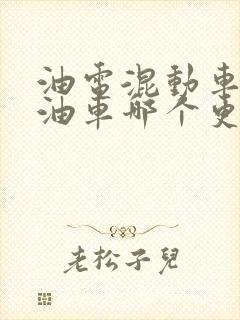 油電混動車
油車哪个更
老松子兒